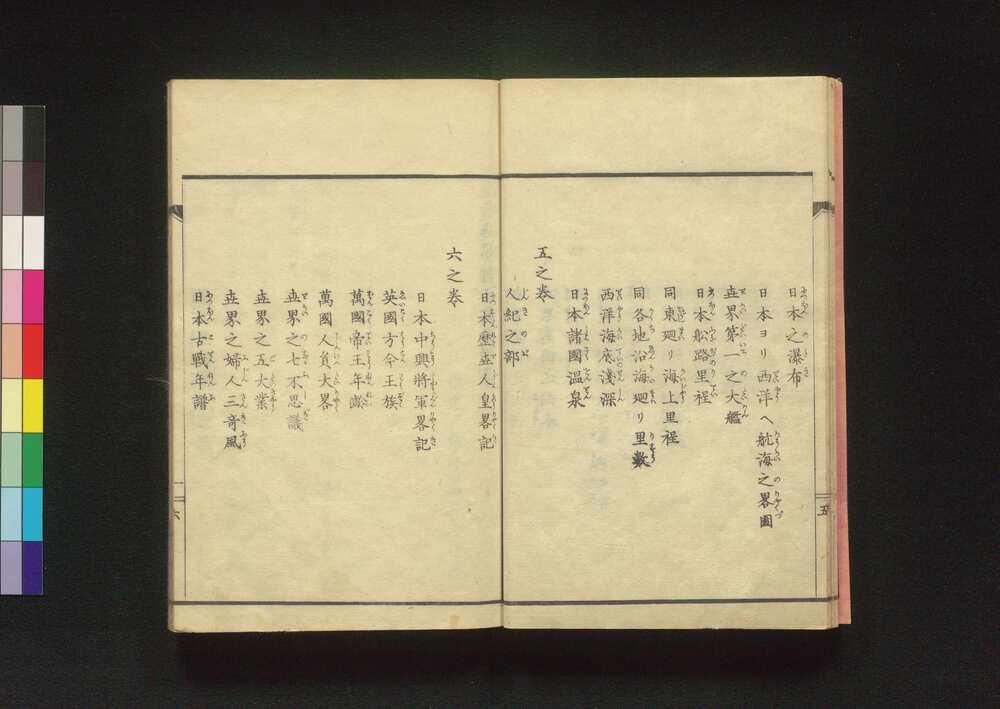 日本之瀑布
日本ヨリ西洋ヘ航海之畧圖
世界第一之大艦
日本舩路里程
同東廻り海上里程
同各地沿海廻り里數
西洋海底淺深
日本諸國温泉
五之巻
人紀之部
日本歴世人皇畧記
六之巻
日本中興將軍畧記
英國方今王族
萬國帝王年齢
萬國人員大畧
世界之七不思議
世界之五大業
世界之婦人三奇風
日本古戰年譜
五
六